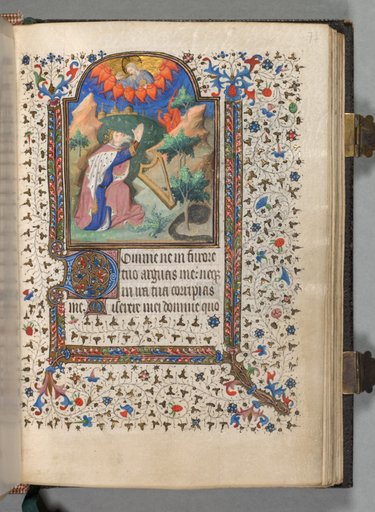 Domine ne in furore
tuo arguas me: neqz
in ira tua corripias
me. Miserere mei domine quo